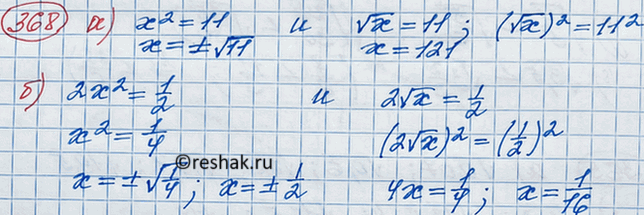 368 а) x² = 11 и √x = 11; (√x)² = 11²
x = ±√11 x = 121
б) 2x² = 1/2 и 2√x = 1/2
x² = 1/4 (2√x)² = (1/2)²
©reshak.ru
x = ±√1/4; x = ±1/2 4x = 1/4; x = 1/16